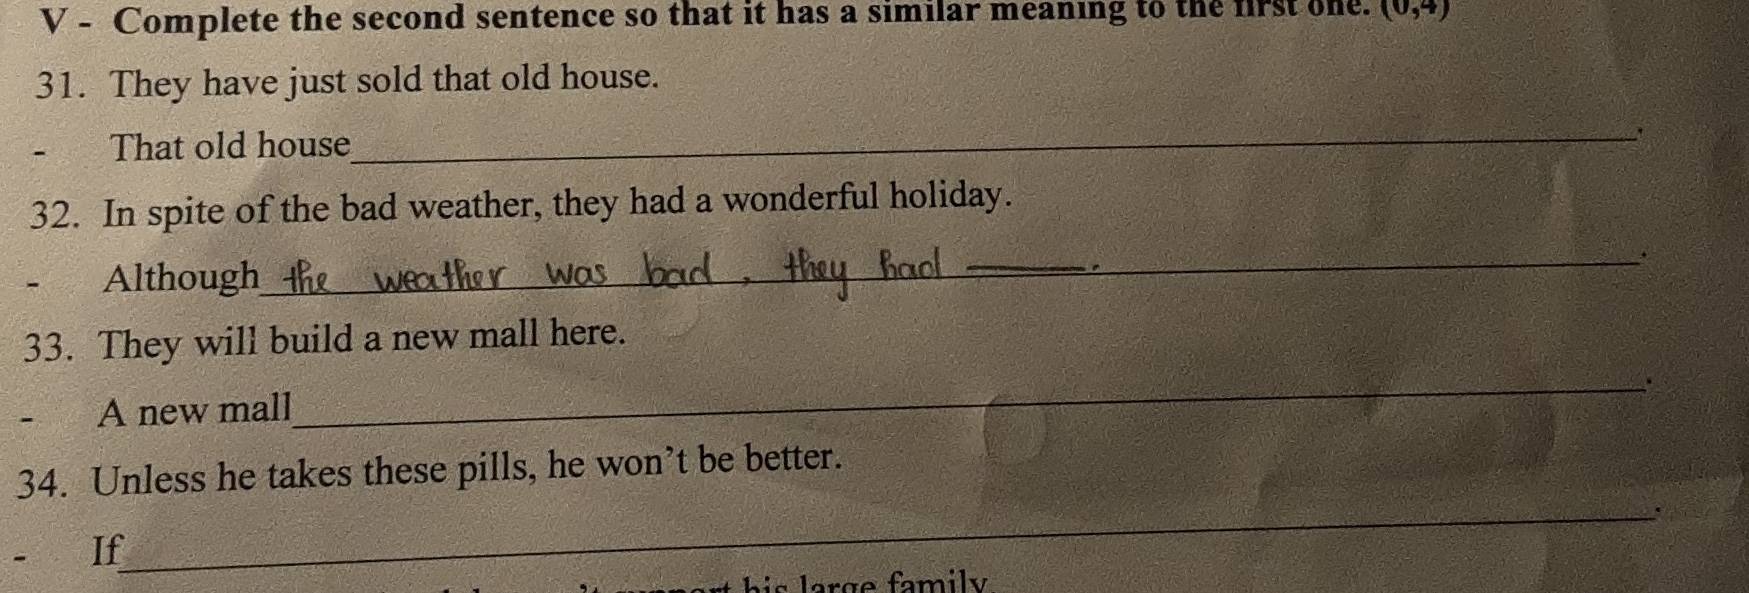 V - Complete the second sentence so that it has a similar meaning to the first one. (0,4)
31. They have just sold that old house.
- That old house____.
32. In spite of the bad weather, they had a wonderful holiday.
- Although the weather was bad, they had ——.
33. They will build a new mall here.
- A new mall____.
34. Unless he takes these pills, he won't be better.
- If____.
his large family